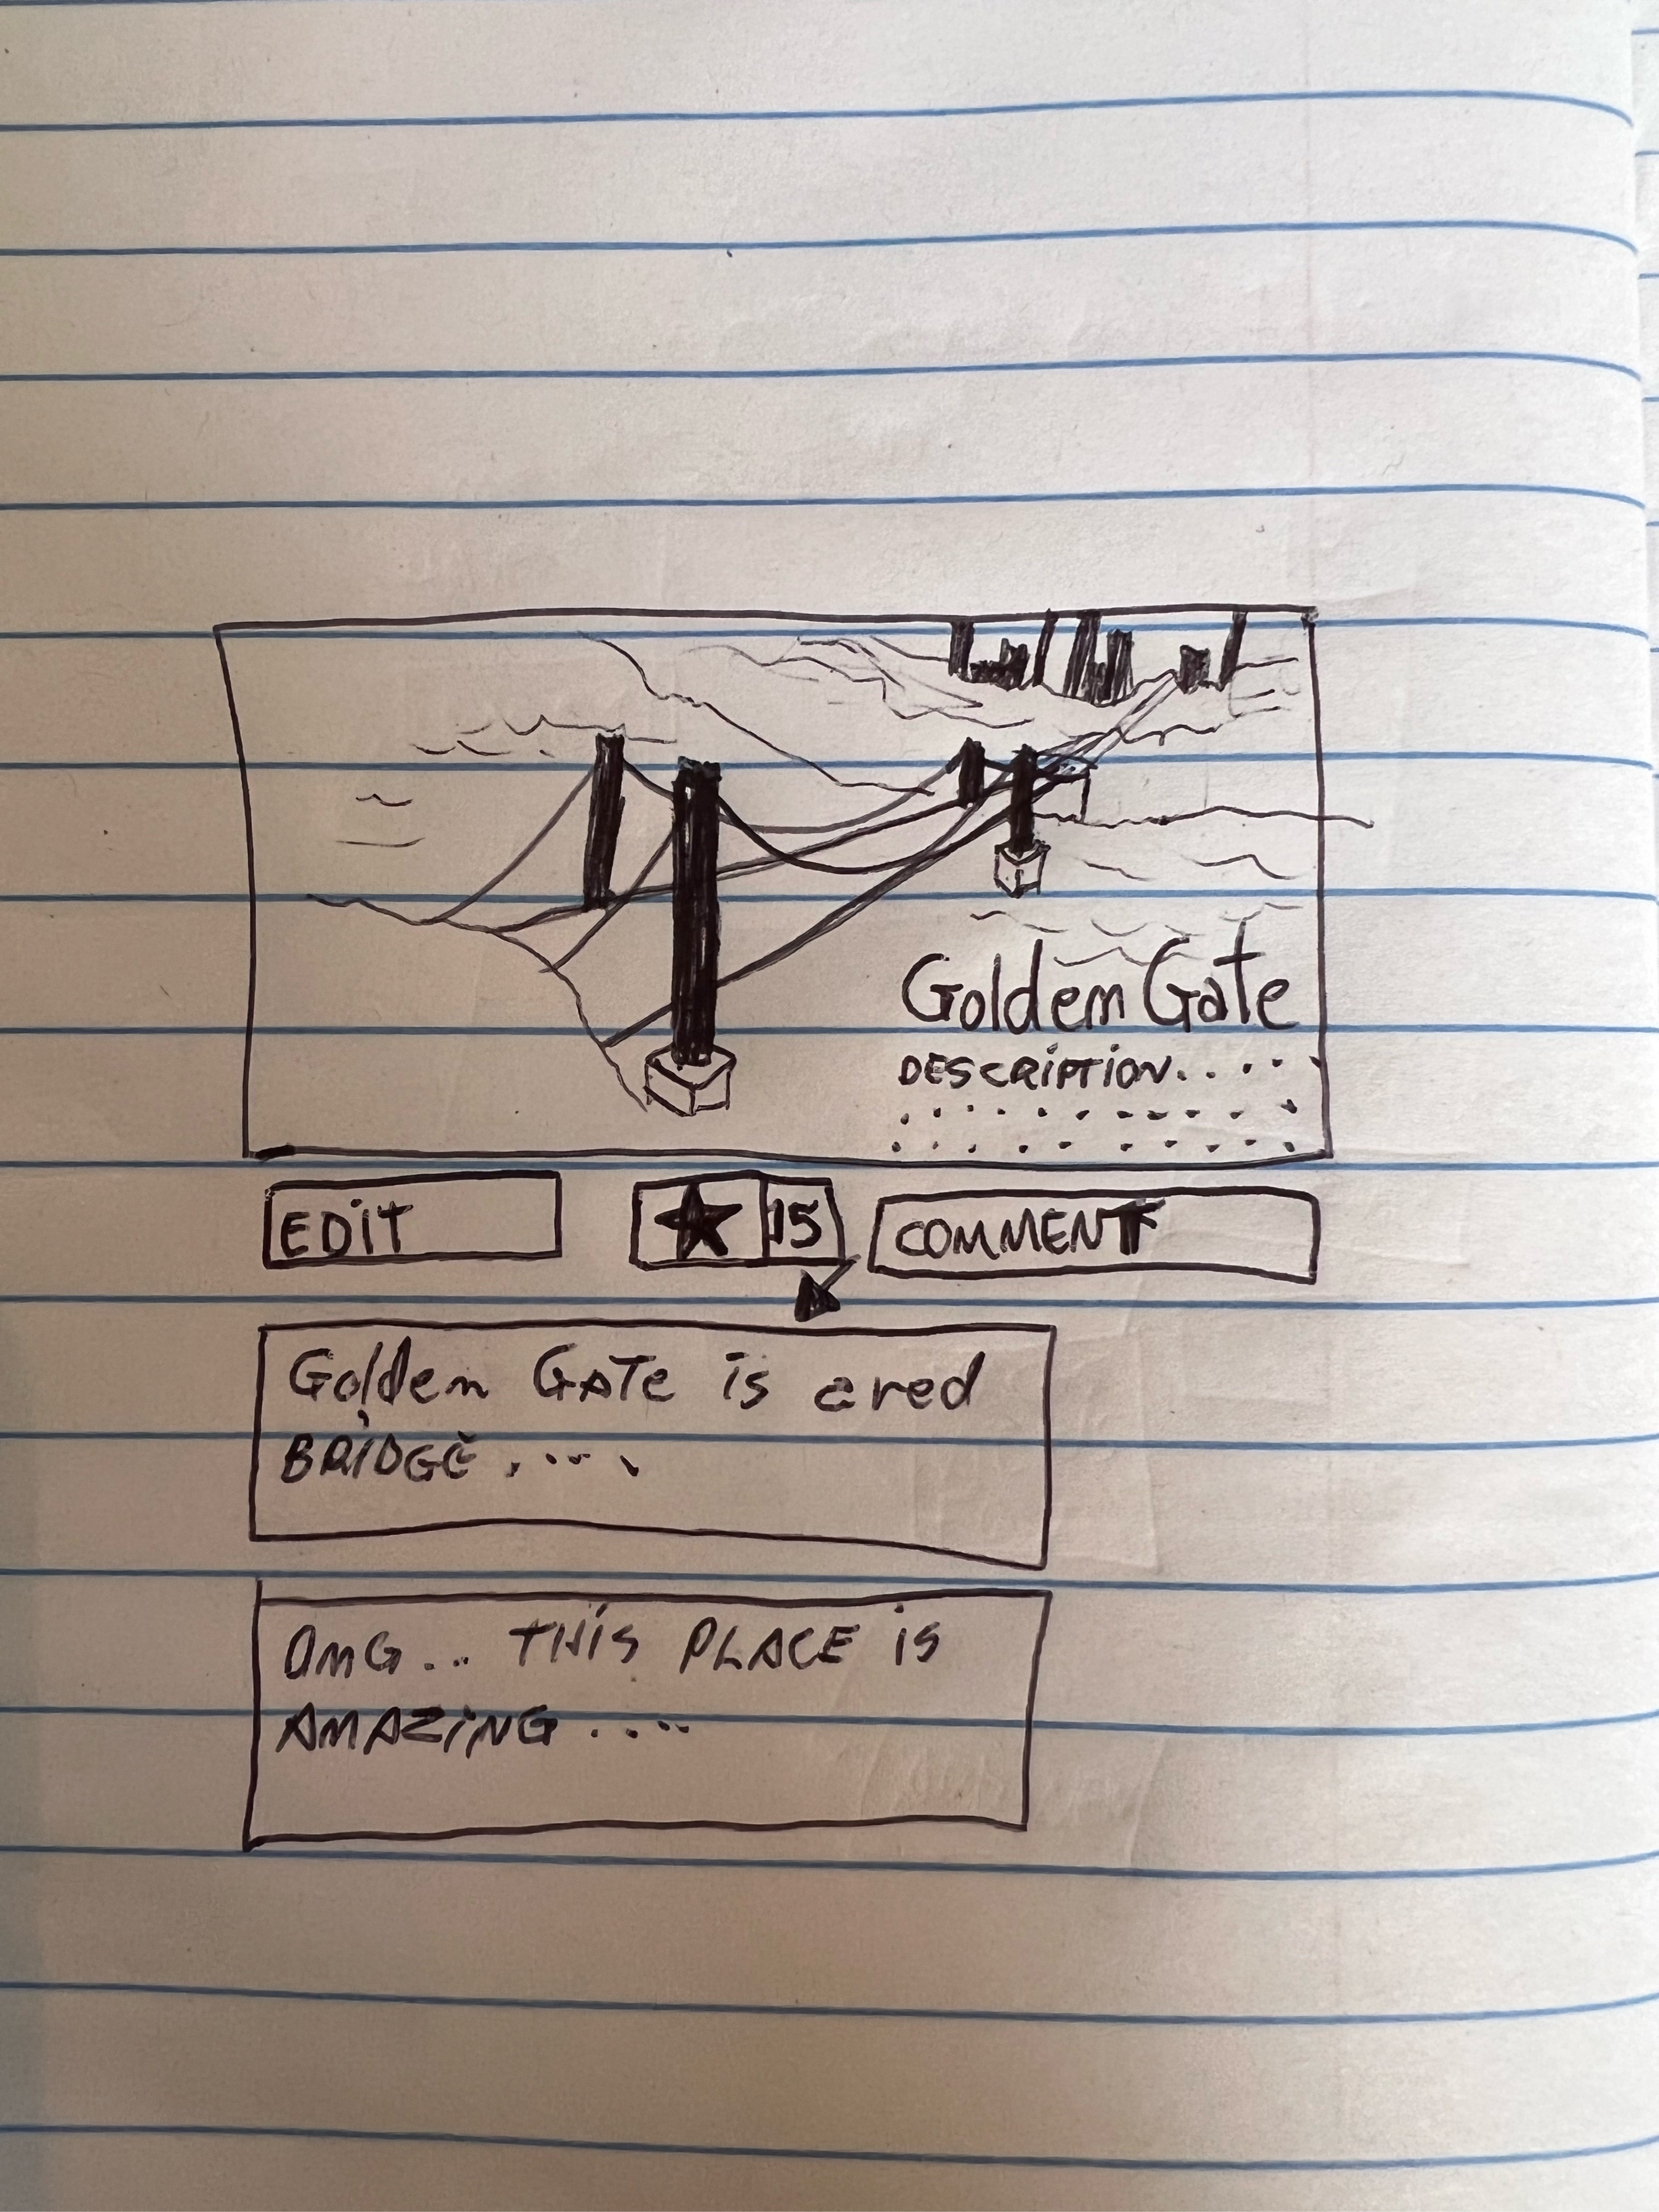 Golden Gate
DESCRIPTION. . . . .
EDIT
15
COMMENT
Golden GATE is a red
BRIDGE . . . . .
OMG... THIS PLACE is
AMAZING . . . . .